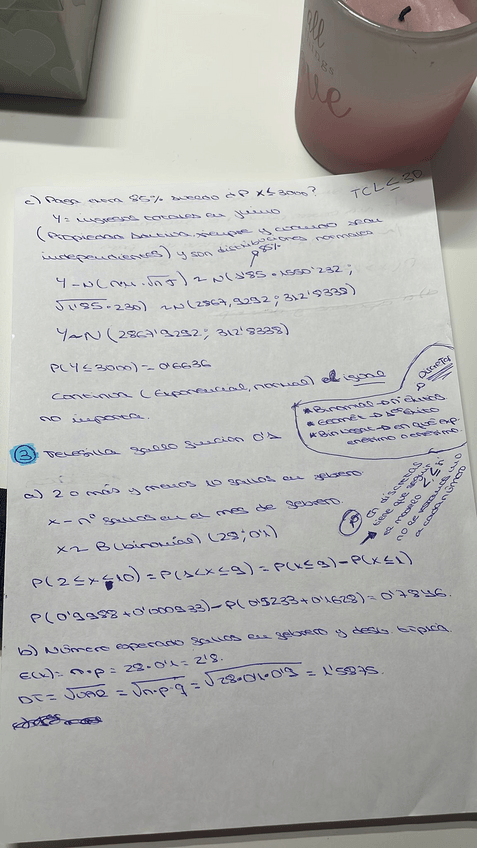 c) Paga extra 85% sueldo ¿P X≤3000?
TCL≤30
Y = ingresos totales en junio
(Propiedad aditiva, siempre y cuando sean
independientes) y son distribuciones normales
85%
Y~N(n·μ; √n·σ) ≈ N(1'85·1550'232;
√1'85·230) ~N(2867,9292; 312'8338)
Y~N(2867'9292; 312'8338)
P(Y≤3000)=0'6636
Continua (Exponencial, normal) el igual
no importa.
* Binomial → nº éxitos
* Geomét → 1º éxito
* Bin negat → en qué exp.
enésimo
③ Telesilla fallo función 0'1
a) 2 o más y menos 10 fallos en febrero.
x – nº fallos en el mes de febrero.
x≈ B(binomial) (28; 0'1)
P(2≤x<10) = P(1<x≤9) = P(x≤9) – P(x≤1)
en discretas
tiene que seguir
el modelo
P(0'9988 + 0'000933) – P(0'5233+0'1628) = 0'7846.
b) Número esperado fallos en febrero y desv. típica.
E(x) = n·p = 28·0'1 = 2'8.
DT = √VAR = √n·p·q = √28·0'1·0'9 = 1'5875.